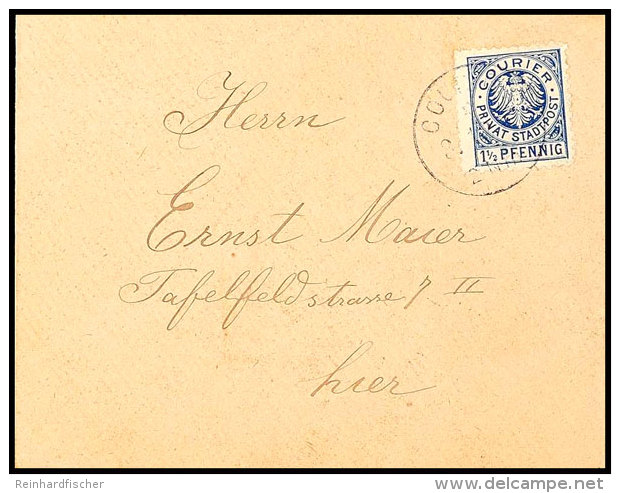 COURIER
PRIVAT STADTPOST
1½ PFENNIG
Herrn
Ernst Maier
Tafelfeldstrasse 7 II
hier
Reinhardfischer
delcampe.net